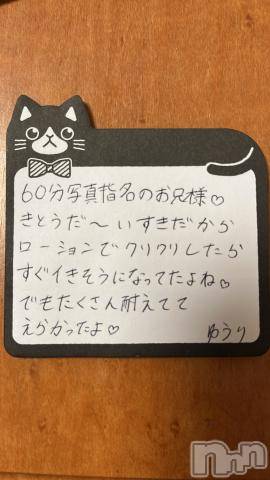 60分写真指名のお兄様♡
きとうだ〜いすきだから
ローションでクリクリしたら
すぐイきそうになってたよね♡
でもたくさん耐えてて
えらかったよ♡
ゆうり
Nnn